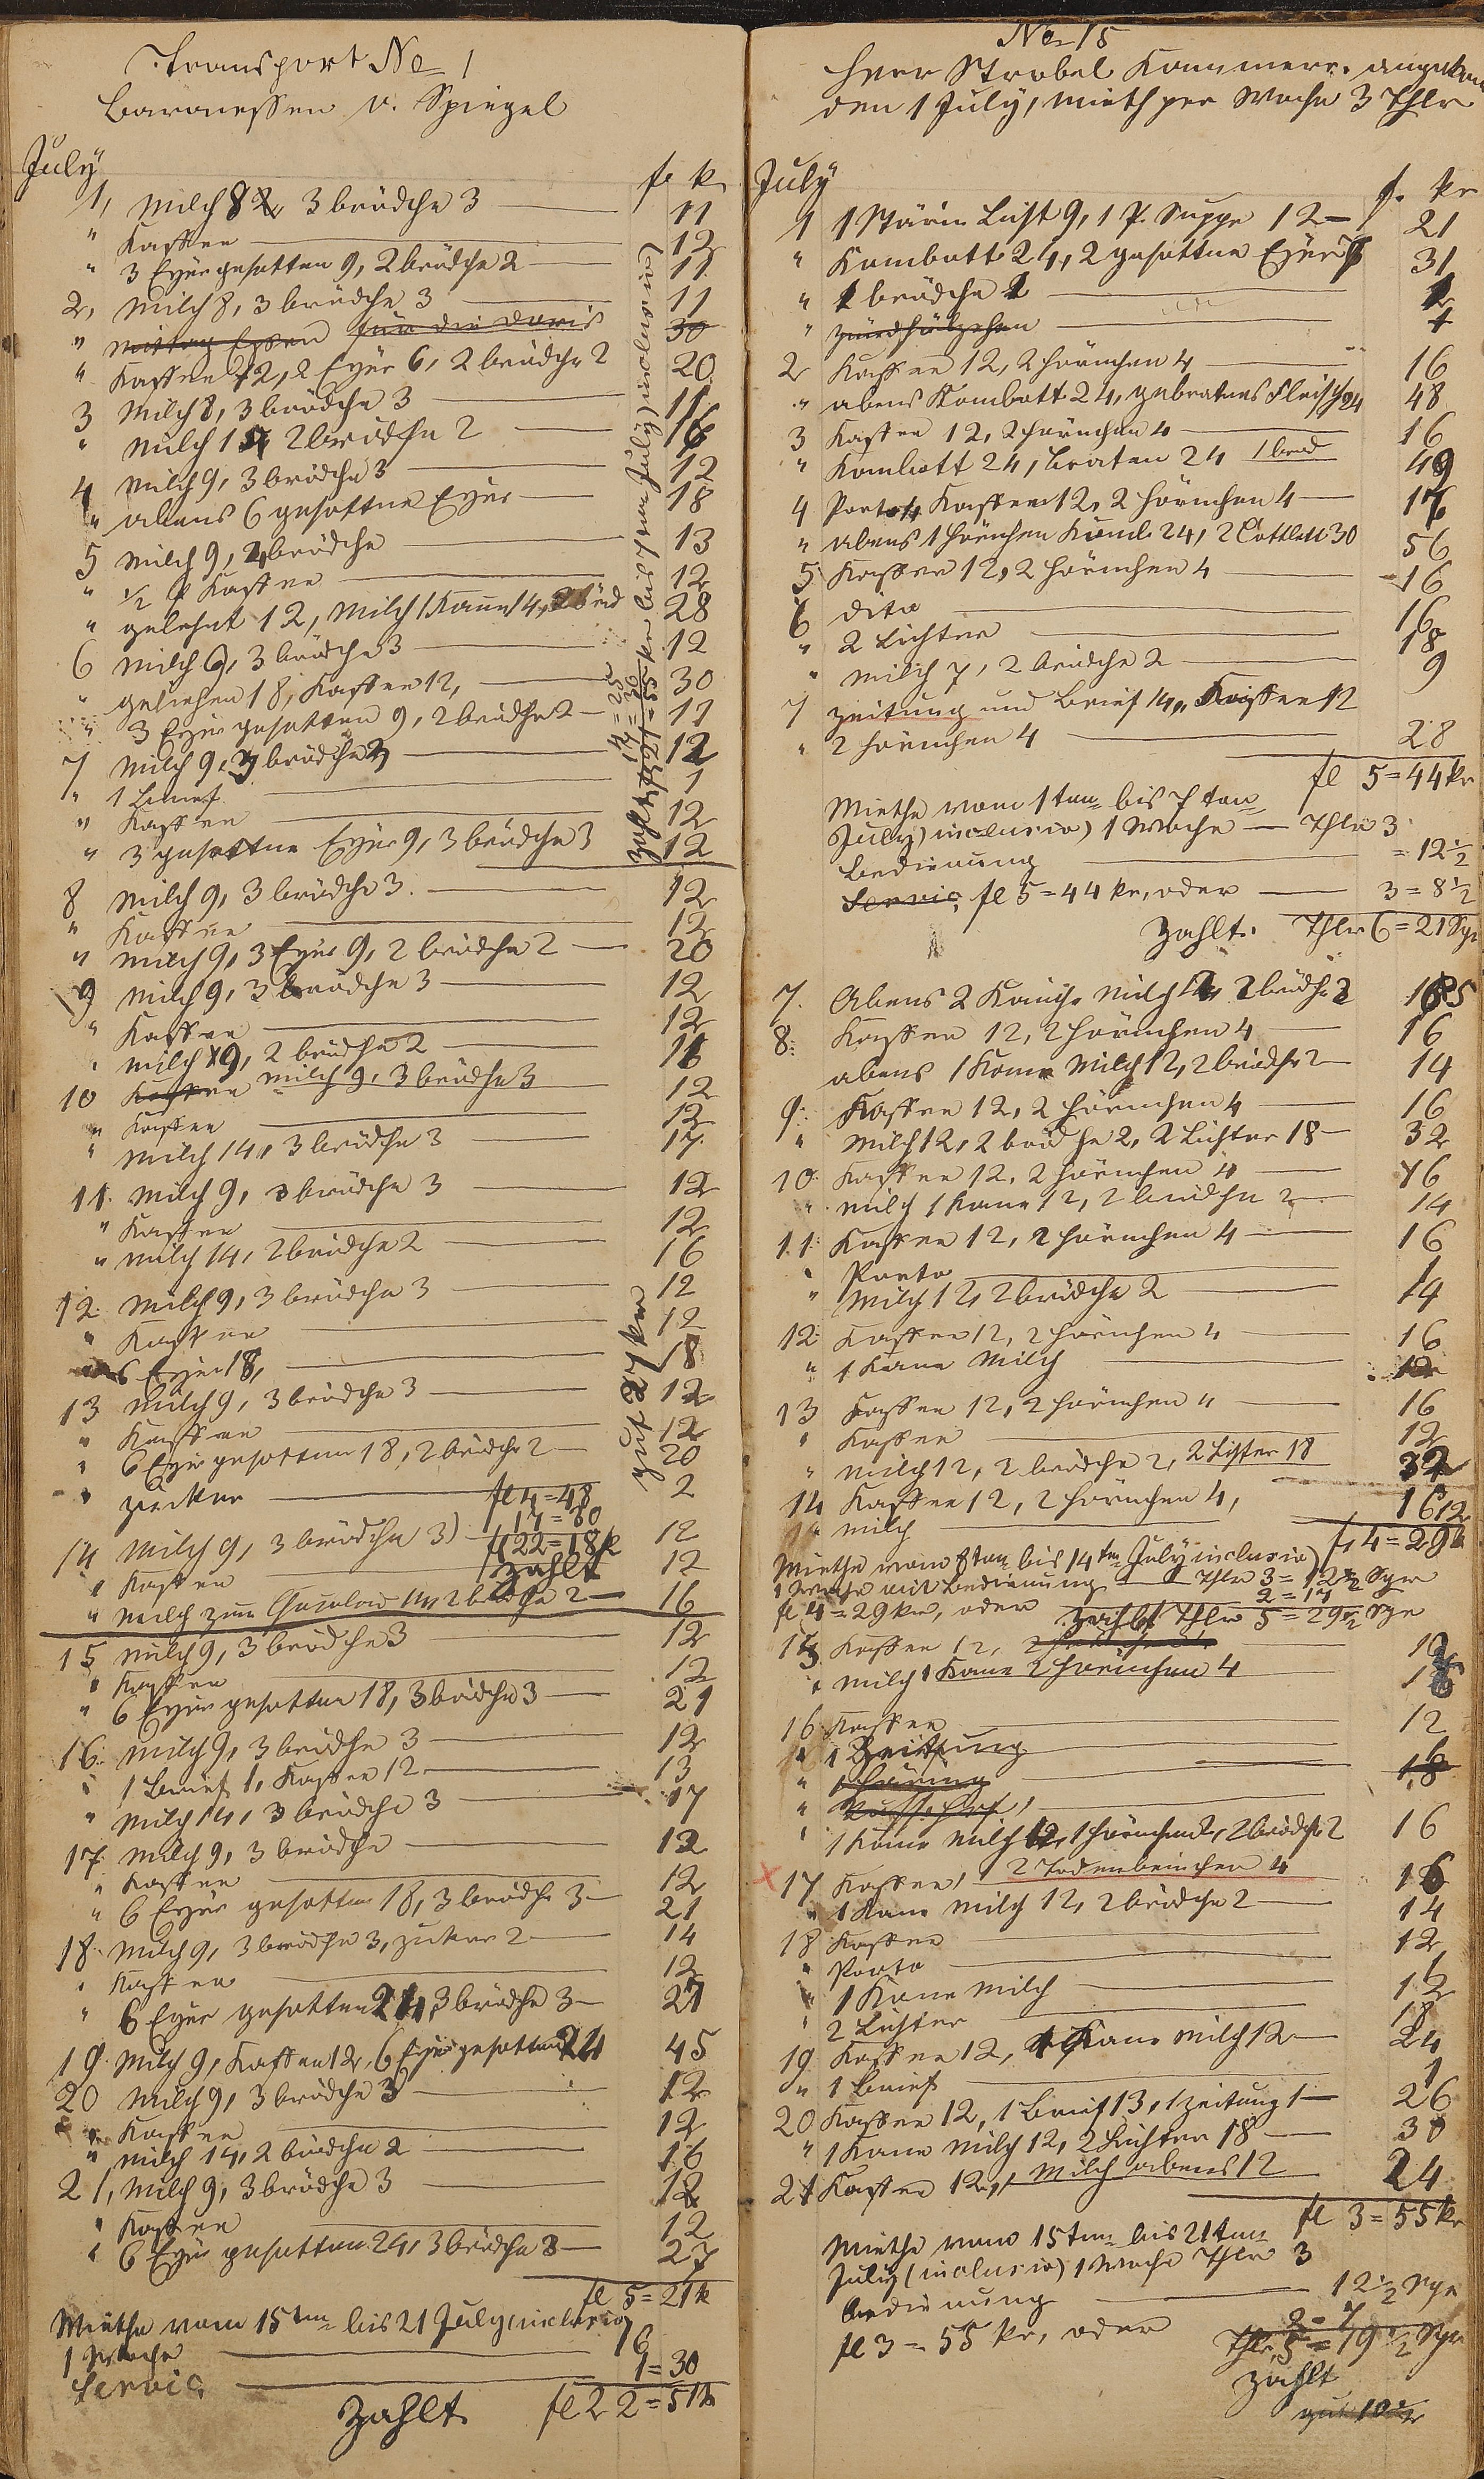 Transport No 1
Baronessen v. Spiegel
July
fl kr
1, Milch 8, 3 brödche 3 11
" Kaffee 12
" 3 Eyer gesotten 9, 2 brödche 2 11
2, Milch 8, 3 brödche 3 11
" Mittag Essen für die Doris 30
" Kaffee 12, 2 Eyer 6, 2 brödche 2 20
3 Milch 8, 3 brödche 3 11
" Milch 14 2 brödche 2 16
4 Milch 9, 3 brödche 3 12
" abens 6 gesottne Eyer 18
5 Milch 9, 4 brödche 13
" 1/2 P Kaffee 12
" gelehnt 12, Milch 1 Kanne 14, 2 bröd 28
6 Milch 9, 3 brödche 3 12
" geliehen 18, Kaffee 12, 30
" 3 Eyer gesotten 9, 2 brödche 2 11
7 Milch 9, 3 brödche 3 12
" 1 Brief 1
" Kaffee 12
" 3 gesottne Eyer 9, 3 brödche 3 12
zahlt fl 21 = 55 kr bis 7ten July) inclusive)
4 = 25
17 = 30
8 Milch 9, 3 brödche 3. 12
" Kaffee 12
" Milch 9, 3 Eyer 9, 2 brödche 2 20
9 Milch 9, 3 brödche 3 12
" Kaffee 12
" Milch 9, 2 brödche 2 11
10 Kaffee Milch 9, 3 brödche 3 12
" Kaffee 12
" Milch 14, 3 brödche 3 17
11. Milch 9, 3 brödche 3 12
" Kaffee 12
" Milch 14, 2 brödche 2 16
12 Milch 9, 3 brödche 3 12
" Kaffee 12
" 6 Eyer 18, 18
13 Milch 9, 3 brödche 3 12
" Kaffee 12
" 6 Eyer gesotten 18, 2 brödche 2 20
" Zucker 2
gut 27 kr
fl 4 = 48
17 = 30
fl 22 = 18 k
Zahlt
14 Milch 9, 3 brödche 3) 12
" Kaffee 12
" Milch zum Chocolade 14, 2 brödche 2 16
15 Milch 9, 3 brödche 3 12
" Kaffee 12
" 6 Eyer gesotten 18, 3 brödche 3 21
16. Milch 9, 3 brödche 3 12
" 1 Brief 1, Kaffee 12 13
" Milch 14, 3 brödche 3 17
17. Milch 9, 3 brödche 12
" Kaffee 12
" 6 Eyer gesotten 18, 3 brödche 3 21
18. Milch 9, 3 brödche 3, Zucker 2 14
" Kaffee 12
" 6 Eyer gesotten 24, 3 brödche 3 27
19. Milch 9, Kaffee 12, 6 Eyer gesotten 24 45
20 Milch 9, 3 brödche 3 12
" Kaffee 12
" Milch 14, 2 brödche 2 16
21, Milch 9, 3 brödche 3 12
" Kaffee 12
" 6 Eyer gesotten 24, 3 brödche 3 27
fl 5 = 21 k
Miethe vom 15ten bis 21 July inclusiv
1 Woche 16
Servic. 1 = 30
Zahlt fl 22 = 51 k
No 15
Herr Strobel Kammerr. angekom
den 1 July, mieth per Woche 3 Thlr
July
f. kr
1 1 Stärin Licht 9, 1 P. Suppe 12 21
" Kombott 24, 2 gesottne Eyer 31
" brödche
" Zündhölzchen
2 Kaffee 12, 2 hörnchen 4 16
" abens Kombott 24, gebratenes Fleisch 24 48
3 Kaffee 12, 2 hörnchen 4 16
" Kombott 24, braten 24 1 brod 49
4 Porto Kaffee 12, 2 hörnchen 4 17
" abens 1 hörnchen Komb 24, 2 Cottlett 30 56
5 Kaffee 12, 2 hörnchen 4 16
6 dito 16
" 2 Lichter 18
" Milch 7, 2 brödche 2 9
7 Zeitung und Brief, Kaffee 12
" 2 hörnchen 4 28
fl 5 = 44 kr
Miethe vom 1ten bis 7ten
July) inclusiv) 1 Woche — Thlr 3
Bedienung = 12 1/2
Servic, fl 5 = 44 kr, oder 3 = 8 1/2
Zahlt. Thlr 6 = 21 Sgr
7. Abens 2 Kännche Milch, 2 brödche 2
8. Kaffee 12, 2 hörnchen 4 16
abens 1 Kanne Milch 12, 2 brödche 2 14
9. Kaffee 12, 2 hörnchen 4 16
" Milch 12, 2 brödche 2, 2 Lichter 18 32
10. Kaffee 12, 2 hörnchen 4 16
" Milch 1 Kane 12, 2 brödche 2 14
11. Kaffee 12, 2 hörnchen 4 16
" Porto 1
" Milch 12, 2 brödche 2 14
12. Kaffee 12, 2 hörnchen 4 16
" 1 Kane Milch 12
13 Kaffee 12, 2 hörnchen 4 16
" Kaffee 12
" Milch 12, 2 brödche 2, 2 Lichter 18 32
14 Kaffee 12, 2 hörnchen 4, 16
" Milch 12
fl 4 = 29 k
Miethe vom 8ten bis 14ten July inclusiv)
1 Woche mit Bedienung Thlr 3 = 12 1/2 Sgr
fl 4 = 29 kr, oder 2 = 17
Zahlt Thlr 5 = 29 1/2 Sgr
15 Kaffee 12, 12
" Milch 1 Kane 2 hörnchen 4 16
16. Kaffee 12
" 1 Zeitung
" 1 Häring 18
" 1 Kane Milch 12, 1 hörnchen 2, 2 brödche 2 16
17 Kaffee, 2 Todenbeinchen 4 16
" 1 Kane Milch 12, 2 brödche 2 14
18 Kaffee 12
" Porto 1
" 1 Kane Milch 12
" 2 Lichter 18
19. Kaffee 12, 1 Kane Milch 12 24
" 1 Brief 1
20 Kaffee 12, 1 Brief 13, 1 Zeitung 1 26
" 1 Kane Milch 12, 2 Lichter 18 30
21 Kaffee 12, Milch abens 12 24
fl 3 = 55 kr
Miethe vom 15ten bis 21ten
July (inclusiv) 1 Woche Thlr 3
bedienung 12 1/2 Sgr
fl 3 = 55 kr, oder 2 = 7
Thlr 5 = 19 1/2 Sgr
Zahlt